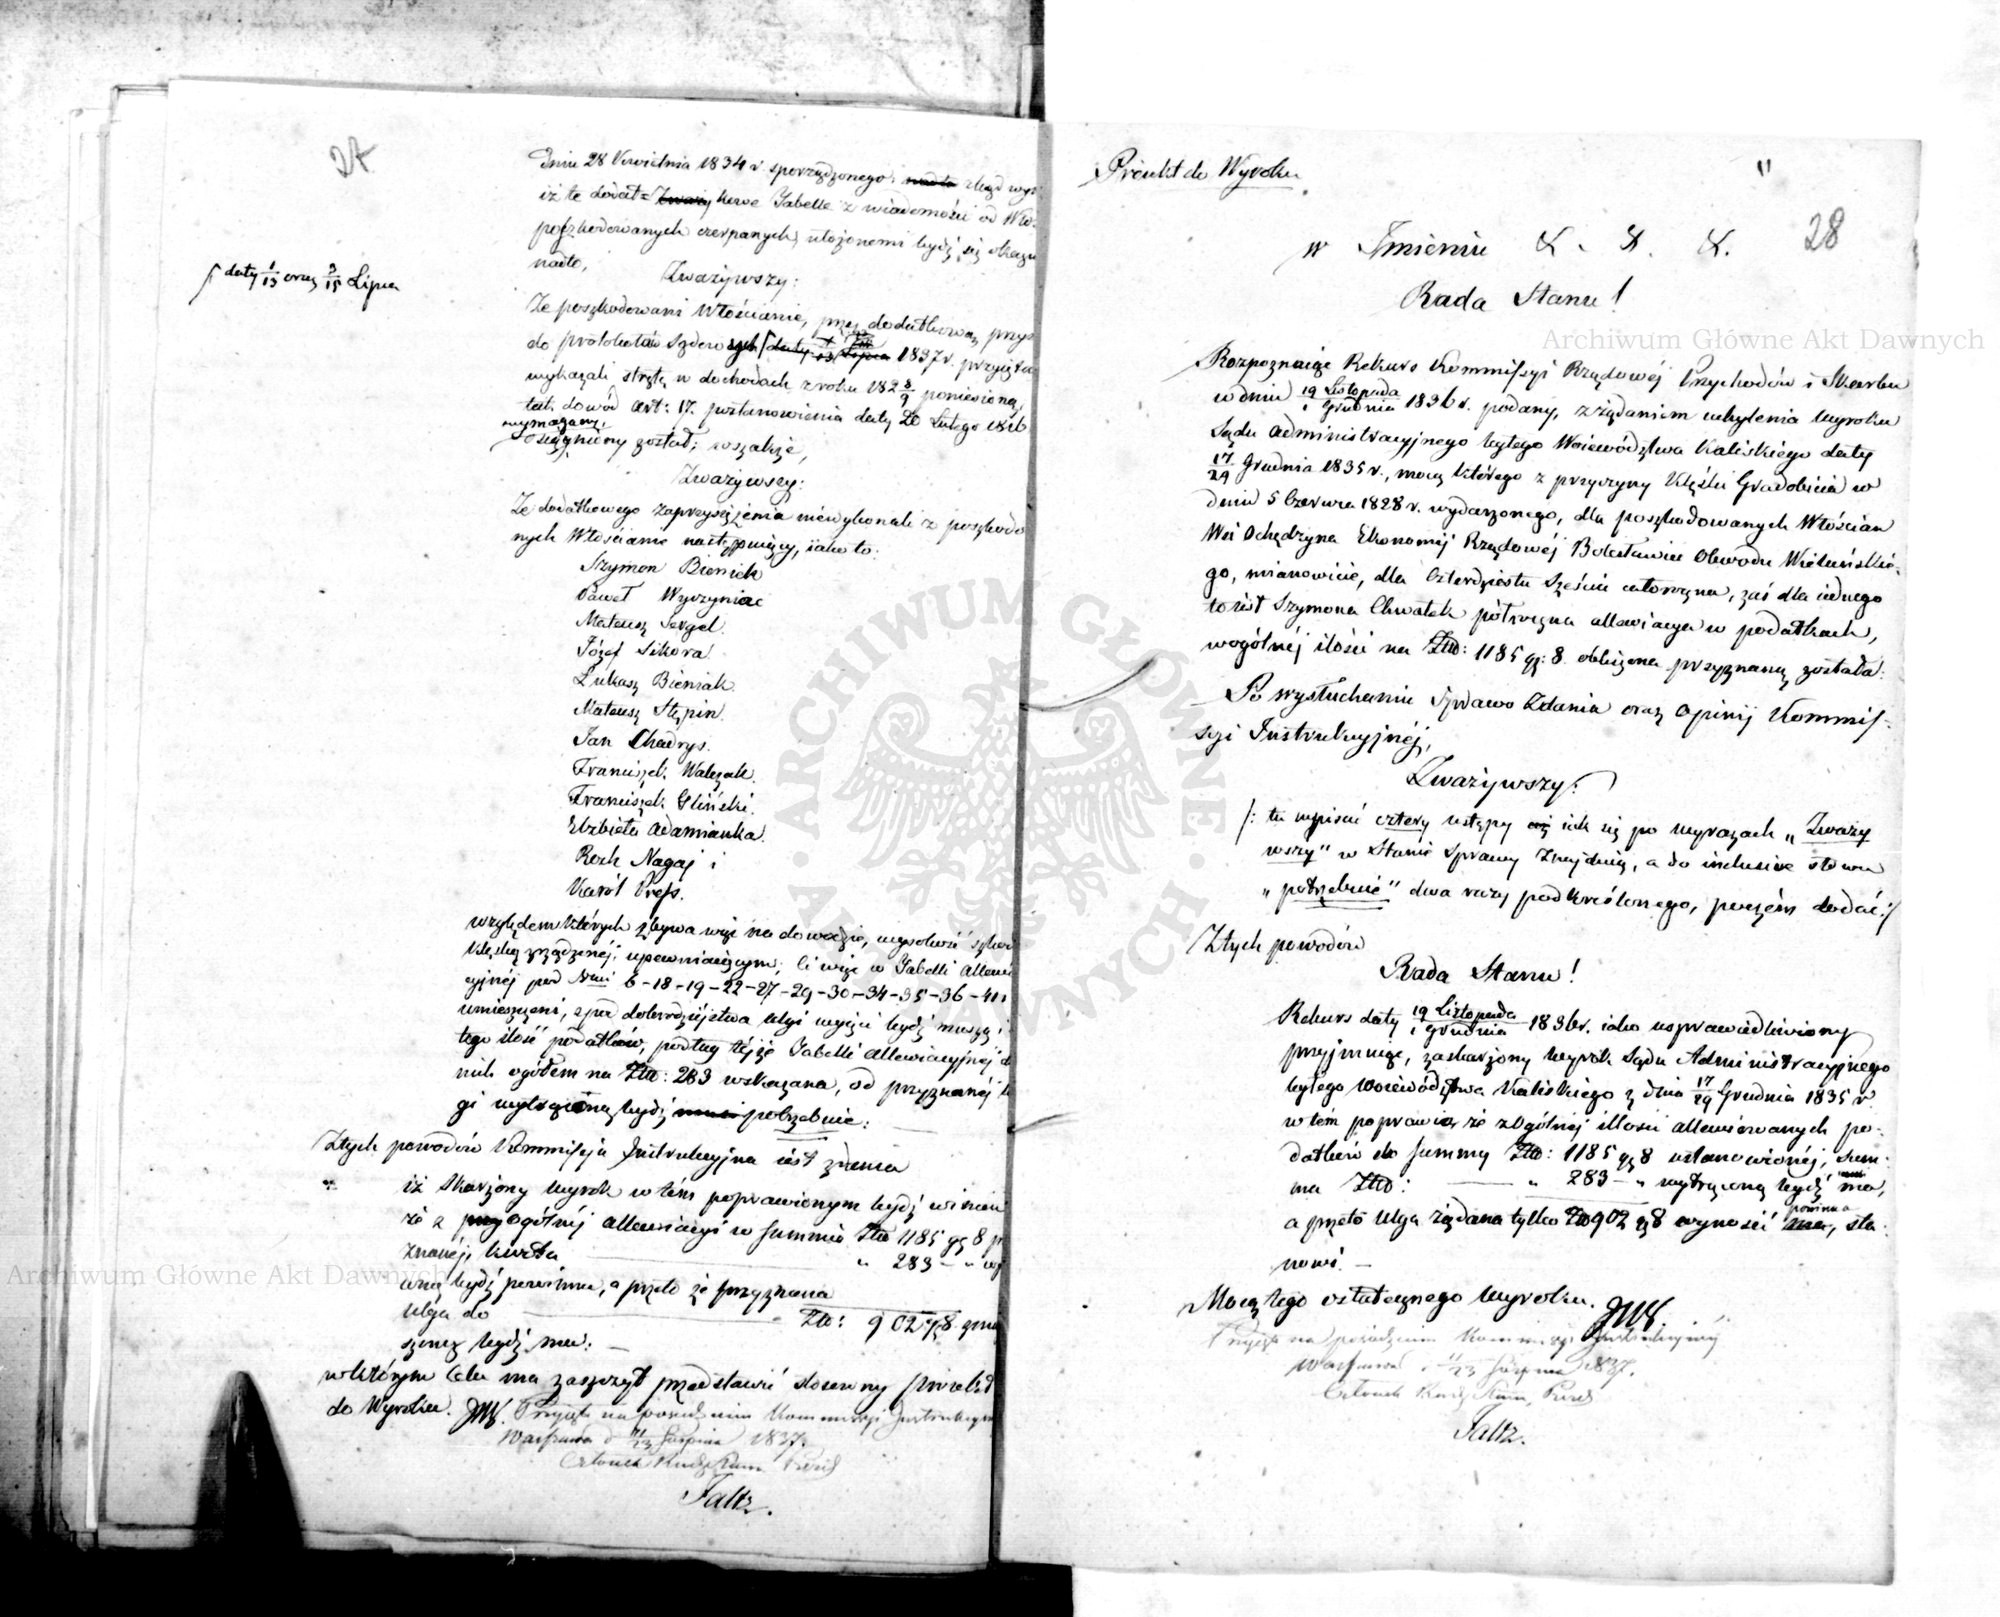 27
dniu 28 Kwietnia 1834 r. sporządzonego; nadto zkąd wy
iż te dodat= Zważy kowe Tabelle z wiadomości od Wło-
poszkodowanych czerpanych, ułożonemi bydź się okazu
nadto,
Zważywszy:
Że poszkodowani Włościanie, przez dodatkową przys
do protokołów Sądowych daty 1/13 Lipca 1837 r. przysięgę
ſ daty 1/13 oraz 3/15 Lipca
wykazali stratę w dochodach z roku 182 8/9 poniesioną,
tak dowód art: 17. postanowienia daty 20 Lutego 1816
wymagany,
osiągniony został; wszakże,
Zważywszy:
Że dodatkowego zaprzysiężenia niewykonali z poszkodo
nych Włościanie następuiący, iako to:
Szymon Bieniek
Paweł Wyczyniac
Mateusz Sergel.
Józef Sikora.
Łukasz Bieniak.
Mateusz Stępin.
Jan Chadrys.
Franciszek Walczak.
Franciszek Gliński.
Elżbieta Adamianka.
Roch Nagaj i
Karól Preſs.
względem których zbywa więc na dowodzie, wysokość szkod
klęską zrządzonéj, upewniaiącym; Ci więc w Tabelli Allewia
cyjnéj pod Nrmi 6-18-19-22-27-29-30-34-35-36-40 i
umieszczeni, z pod dobrodziejstwa ulgi wyjęci bydź muszą i
tego ilość podatków, podług téjże Tabelli allewiacyjnéj d
nich ogółem na Złtp: 283 wskazana, od przyznanéj ul
gi wytrąconą bydź musi potrzebnie:
Z tych powodów Kommiſsja Instrukcyjna iest zdania
iż Skarżony wyrok w tém poprawionym bydź winien
że z przy ogólnéj allewiacyi w summie Złtp 1185 gr 8 p
znanéj, kwota " 283 - "
coną bydź powinna, a przeto że przyznana
ulga do Złtp: 902 gr 8.
szoną bydź ma:
w którym celu ma zaszczyt przedstawić stosowny projekt
do Wyroku. Przyjęto na posiedzeniu Kommissyi Instrukcyjn
Warszawa d 11/23 Sierpnia 1837.
Członek Rady Stanu, Prezd
Faltz.
Projekt do Wyroku "
28
w Imieniu &. &. &.
Rada Stanu!
Rozpoznaiąc Rekurs Kommiſsyi Rządowéj Przychodów i Skarbu
w dniu 19 Listopada / 1 Grudnia 1836 r. podany, z żądaniem uchylenia wyroku
Sądu Administracyjnego byłego Woiewództwa Kaliskiego daty
17/29 Grudnia 1835 r., mocą którego z przyczyny klęski Gradobicia w
dniu 5 Czerwca 1828 r. wydarzonego, dla poszkodowanych Włościan
Wsi Ochędzyna Ekonomij Rządowéj Bolesławiec Obwodu Wieluńskié-
go, mianowicie, dla Czterdziestu Sześciu całoroczna, zaś dla iednego
to iest Szymona Chwatek półroczna allewiacya w podatkach,
w ogólnéj ilości na Złtp: 1185 gr: 8. obliczona przyznaną została.
Po wysłuchaniu Sprawo Zdania oraz Opinij Kommiſ-
syi Instrukcyjnéj,
Zważywszy:
/: tu wpisać cztery ustępy iak się po wyrazach „Zważy
wszy" w Stanie Sprawy znajduią, a do inclusive słowa
„potrzebnie" dwa razy podkréślonego, poczém dodać:/
Z tych powodów
Rada Stanu!
Rekurs daty 19 Listopada / 1 Grudnia 1836 r. iako usprawiedliwiony
przyjmuiąc, zaskarżony wyrok Sądu Administracyjnego
byłego Woiewództwa Kaliskiego z dnia 17/29 Grudnia 1835 r.
w tém poprawia, że z ogólnéj illości allewiowanych po-
datków do summy Złtp: 1185 gr 8 ustanowionéj, sum-
ma Złtp: " 283 - " wytrąconą bydź ma,
a przeto ulga żądana tylko Złtp 902 gr 8 wynosić powinna ma, sta-
nowi. -
Mocą tego ostatecznego wyroku.
Przyjęto na posiedzeniu Kommissyi Instrukcyjnéj
Warszawa d 11/23 Sierpnia 1837.
Członek Rady Stanu, Prezd
Faltz.
Archiwum Główne Akt Dawnych
Archiwum Główne Akt Dawnych
ARCHIWUM GŁÓWNE AKT DAWNYCH